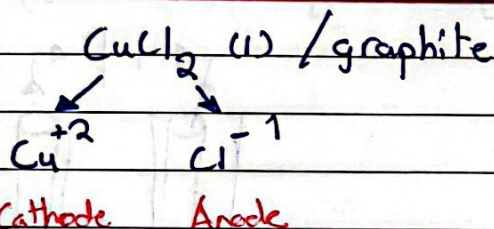 CuCl₂ (l) / graphite
Cu⁺² Cl⁻¹
Cathode Anode